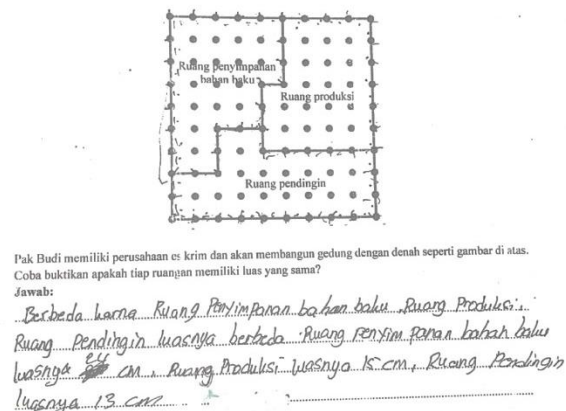 Ruang penyimpanan
bahan baku
Ruang produksi
Ruang pendingin
Pak Budi memiliki perusahaan es krim dan akan membangun gedung dengan denah seperti gambar di atas.
Coba buktikan apakah tiap ruangan memiliki luas yang sama?
Jawab:
Berbeda karna Ruang Penyimpanan bahan baku, Ruang Produksi,
Ruang Pendingin luasnya berbeda. Ruang Penyimpanan bahan baku
luasnya cm, Ruang Produksi luasnya 15 cm, Ruang Pendingin
luasnya 13 cm